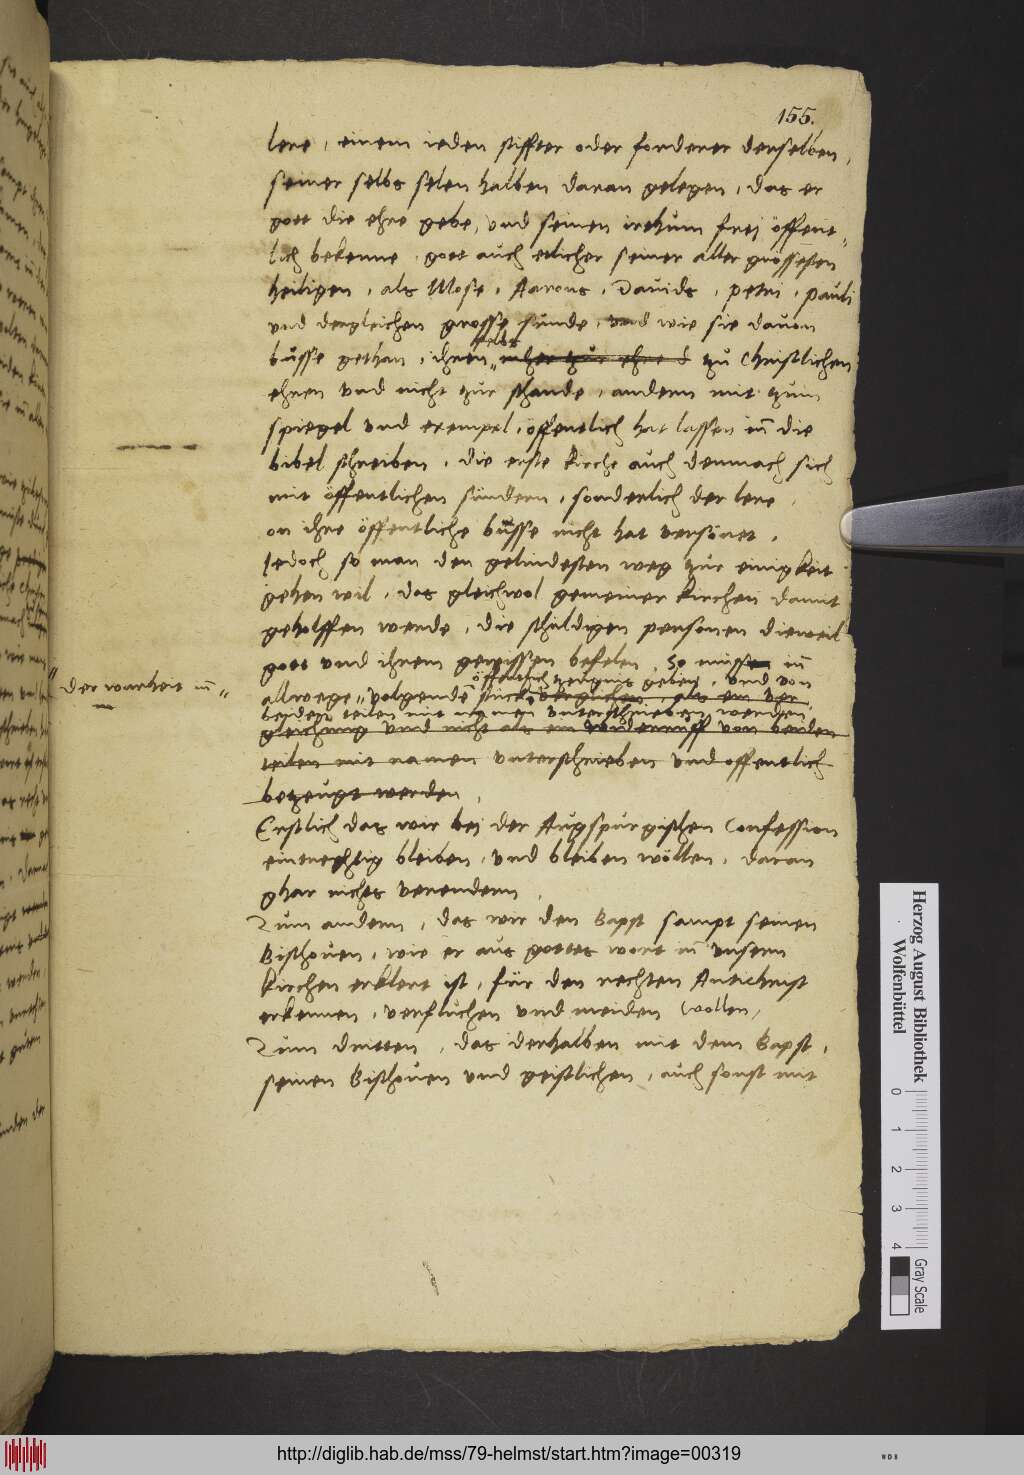 155.
lere, einem ieden stiffter oder forderer derselben,
seiner selbs selen halben daran gelegen, das er
gott die ehre gebe, und seinen irthum frei öffent-
lich bekenne, gott auch etlicher seiner aller grössesten
heiligen, als Mose, Aarons, Dauids, petri, pauli
und dergleichen grosse sünde, und wie sie dauon
selbs
büsse gethan, ihnen zu Christlichen
ehren und nicht zur schande, andern mit zum
spiegel und exempel, öffentlich hat lassen inn die
bibel schreiben, die erste kirche auch dennach sich
mit öffentlichen sündern, sonderlich der lere,
on ihre öffentliche büsse nicht hat versönet,
Jedoch so man den gelindesten weg zur einigkeit
gehen wil, das gleichwol gemeiner kirchen damit
geholffen werde, die schüldigen personen dieweil
gott und ihrem gewissen befelen, So müssen inn
der warheit inn
öffentlich zeugnis geben, und von
allwege volgende stück vergliechen, als ein ver
beiden teilen mit namen unterschrieben werden,
gleichung und nicht als ein widderruff von beiden
teilen mit namen unterschrieben und offentlich
bezeugt werden,
Erstlich das wir bei der Augspurgischen Confession
eintrechtig bleiben, und bleiben wöllen, daran
ghar nichts verendern,
Zum andern, das wir den Bapst sampt seinen
Bischouen, wie er aus gottes wort inn unsern
kirchen erklert ist, für den rechten Antichrist
erkennen, verfluchen und meiden wollen,
Zum dritten, das derhalben mit dem Bapst,
seinen Bischouen und geistlichen, auch sonst mit
Herzog August Bibliothek
Wolfenbüttel
0 1 2 3 4
Gray Scale
http://diglib.hab.de/mss/79-helmst/start.htm?image=00319
WDB